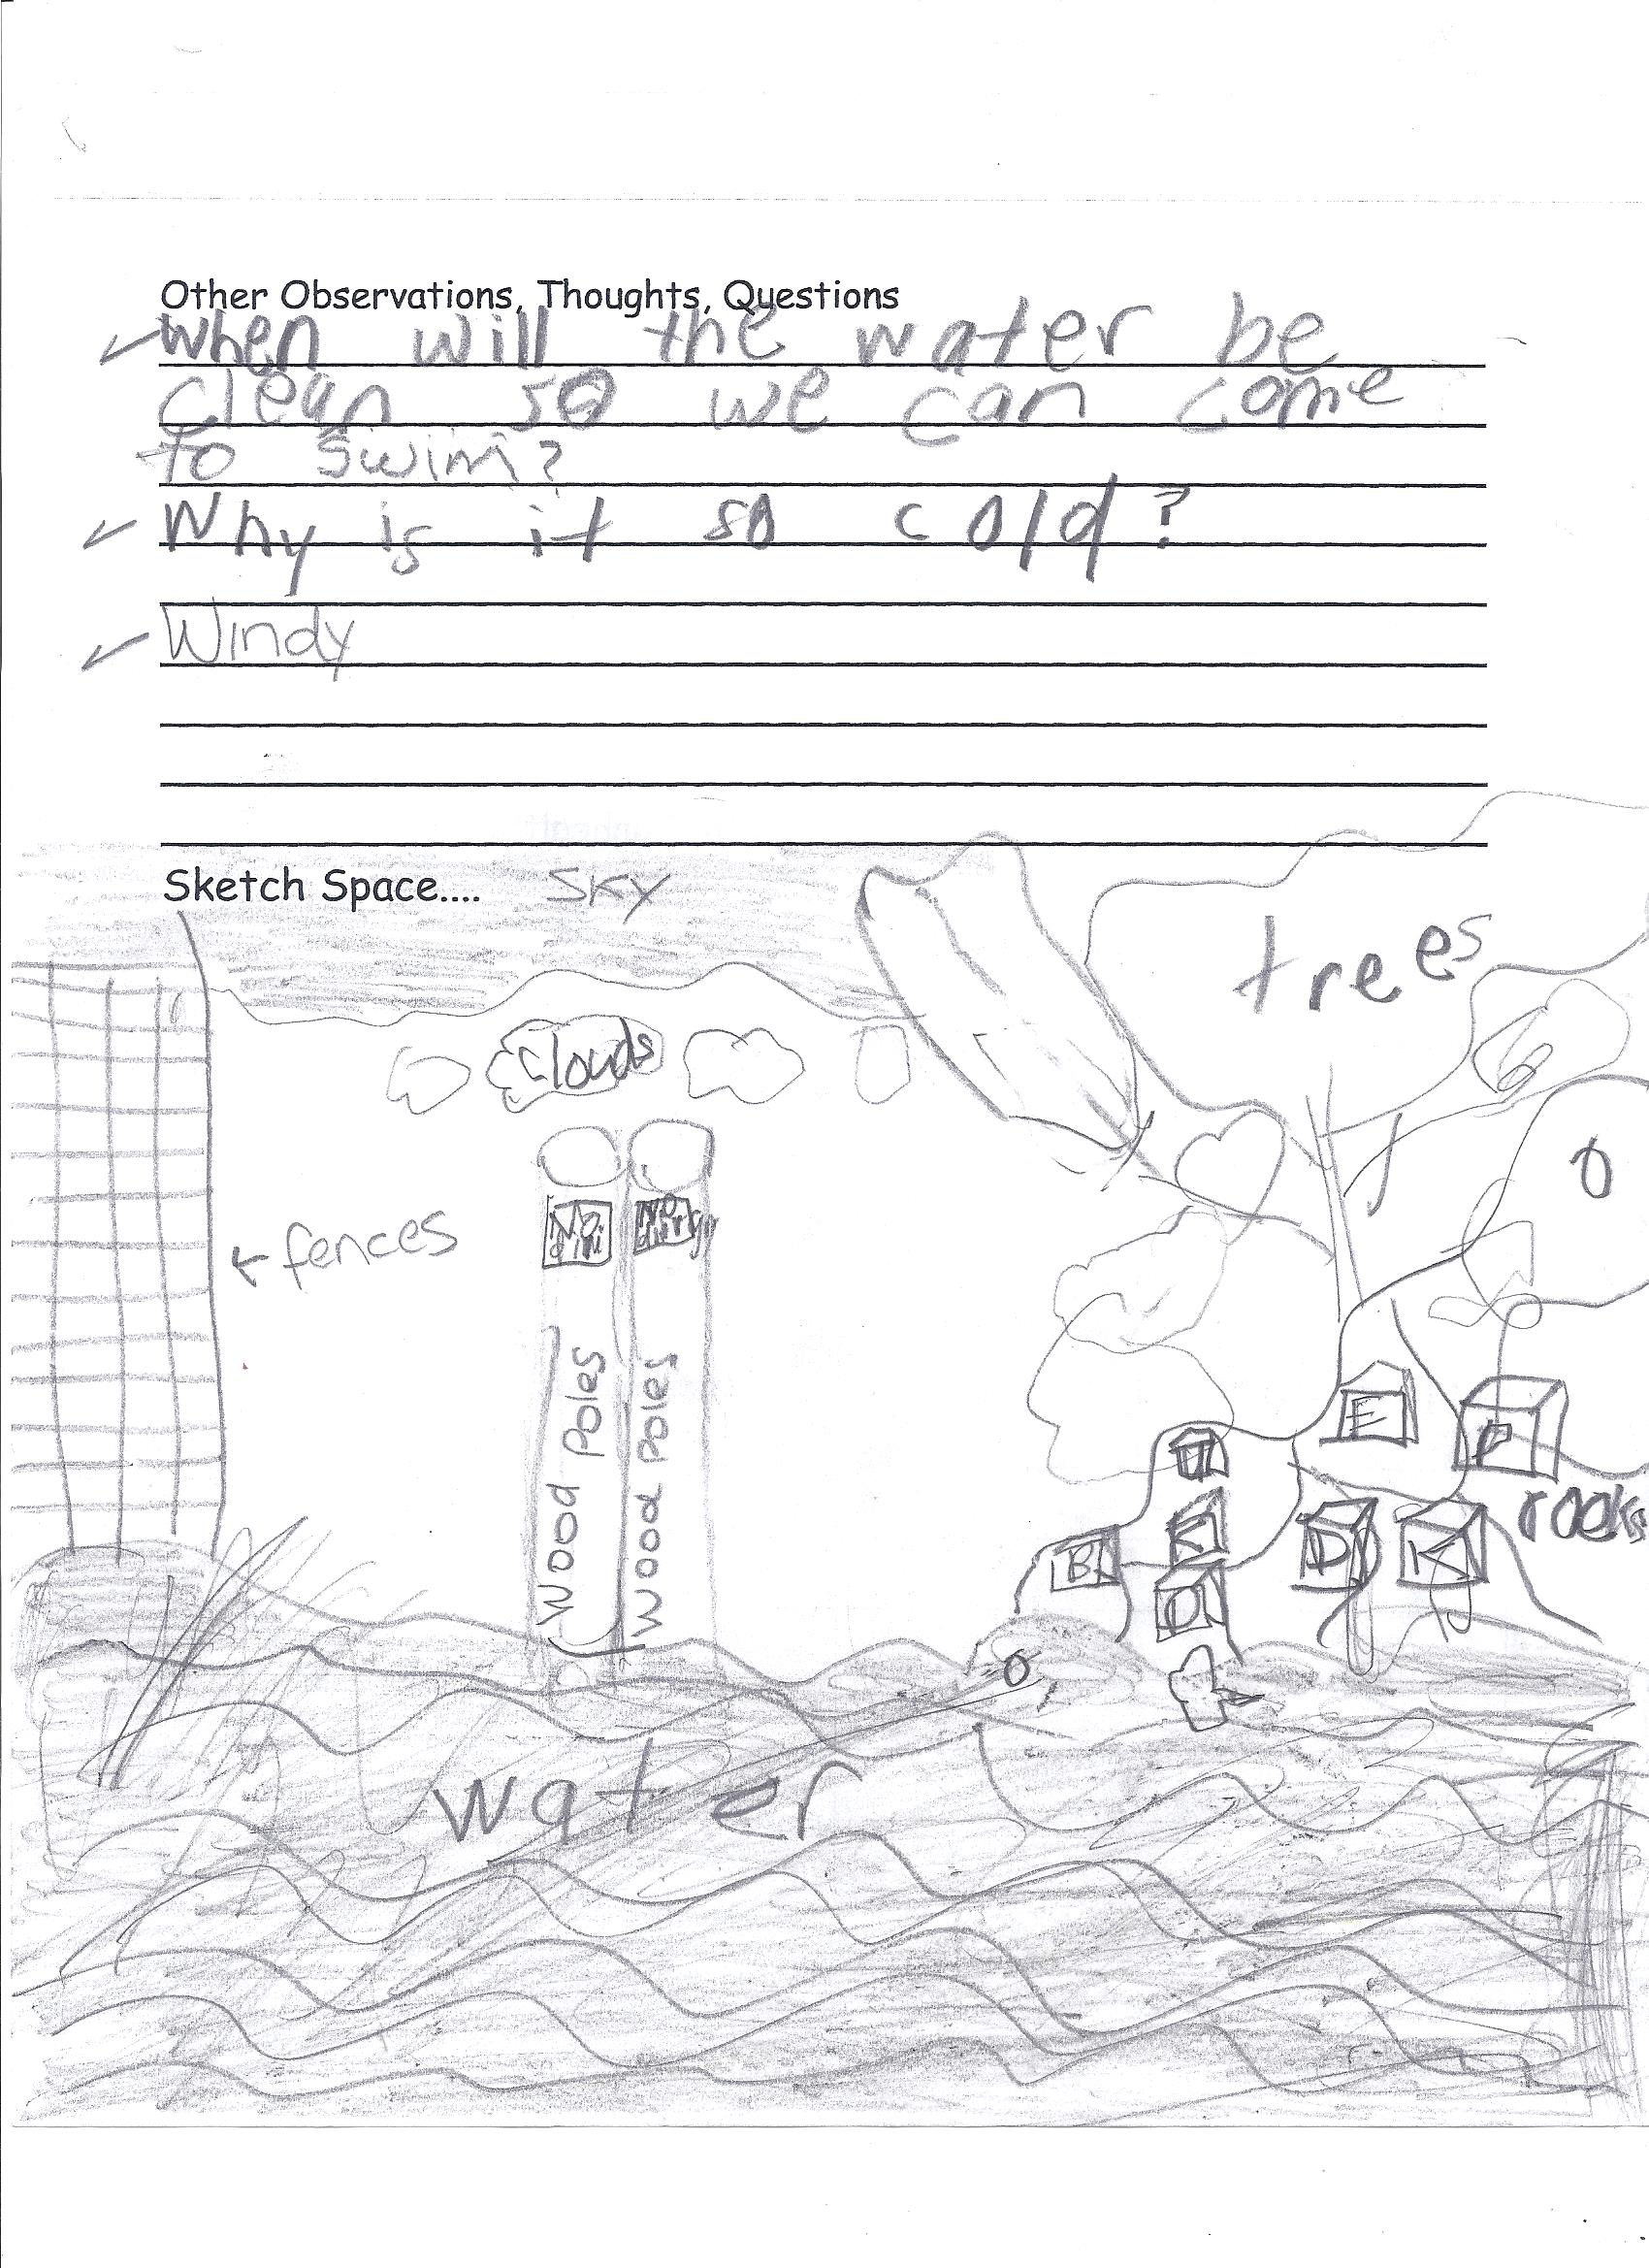 Other Observations, Thoughts, Questions
When will the water be
clean so we can come
to swim?
Why is it so cold?
Windy
Sketch Space....
SKY
trees
Clouds
fences
No
No
Wood Poles
Wood Poles
E
P
rocks
B
E
D
K
O
water